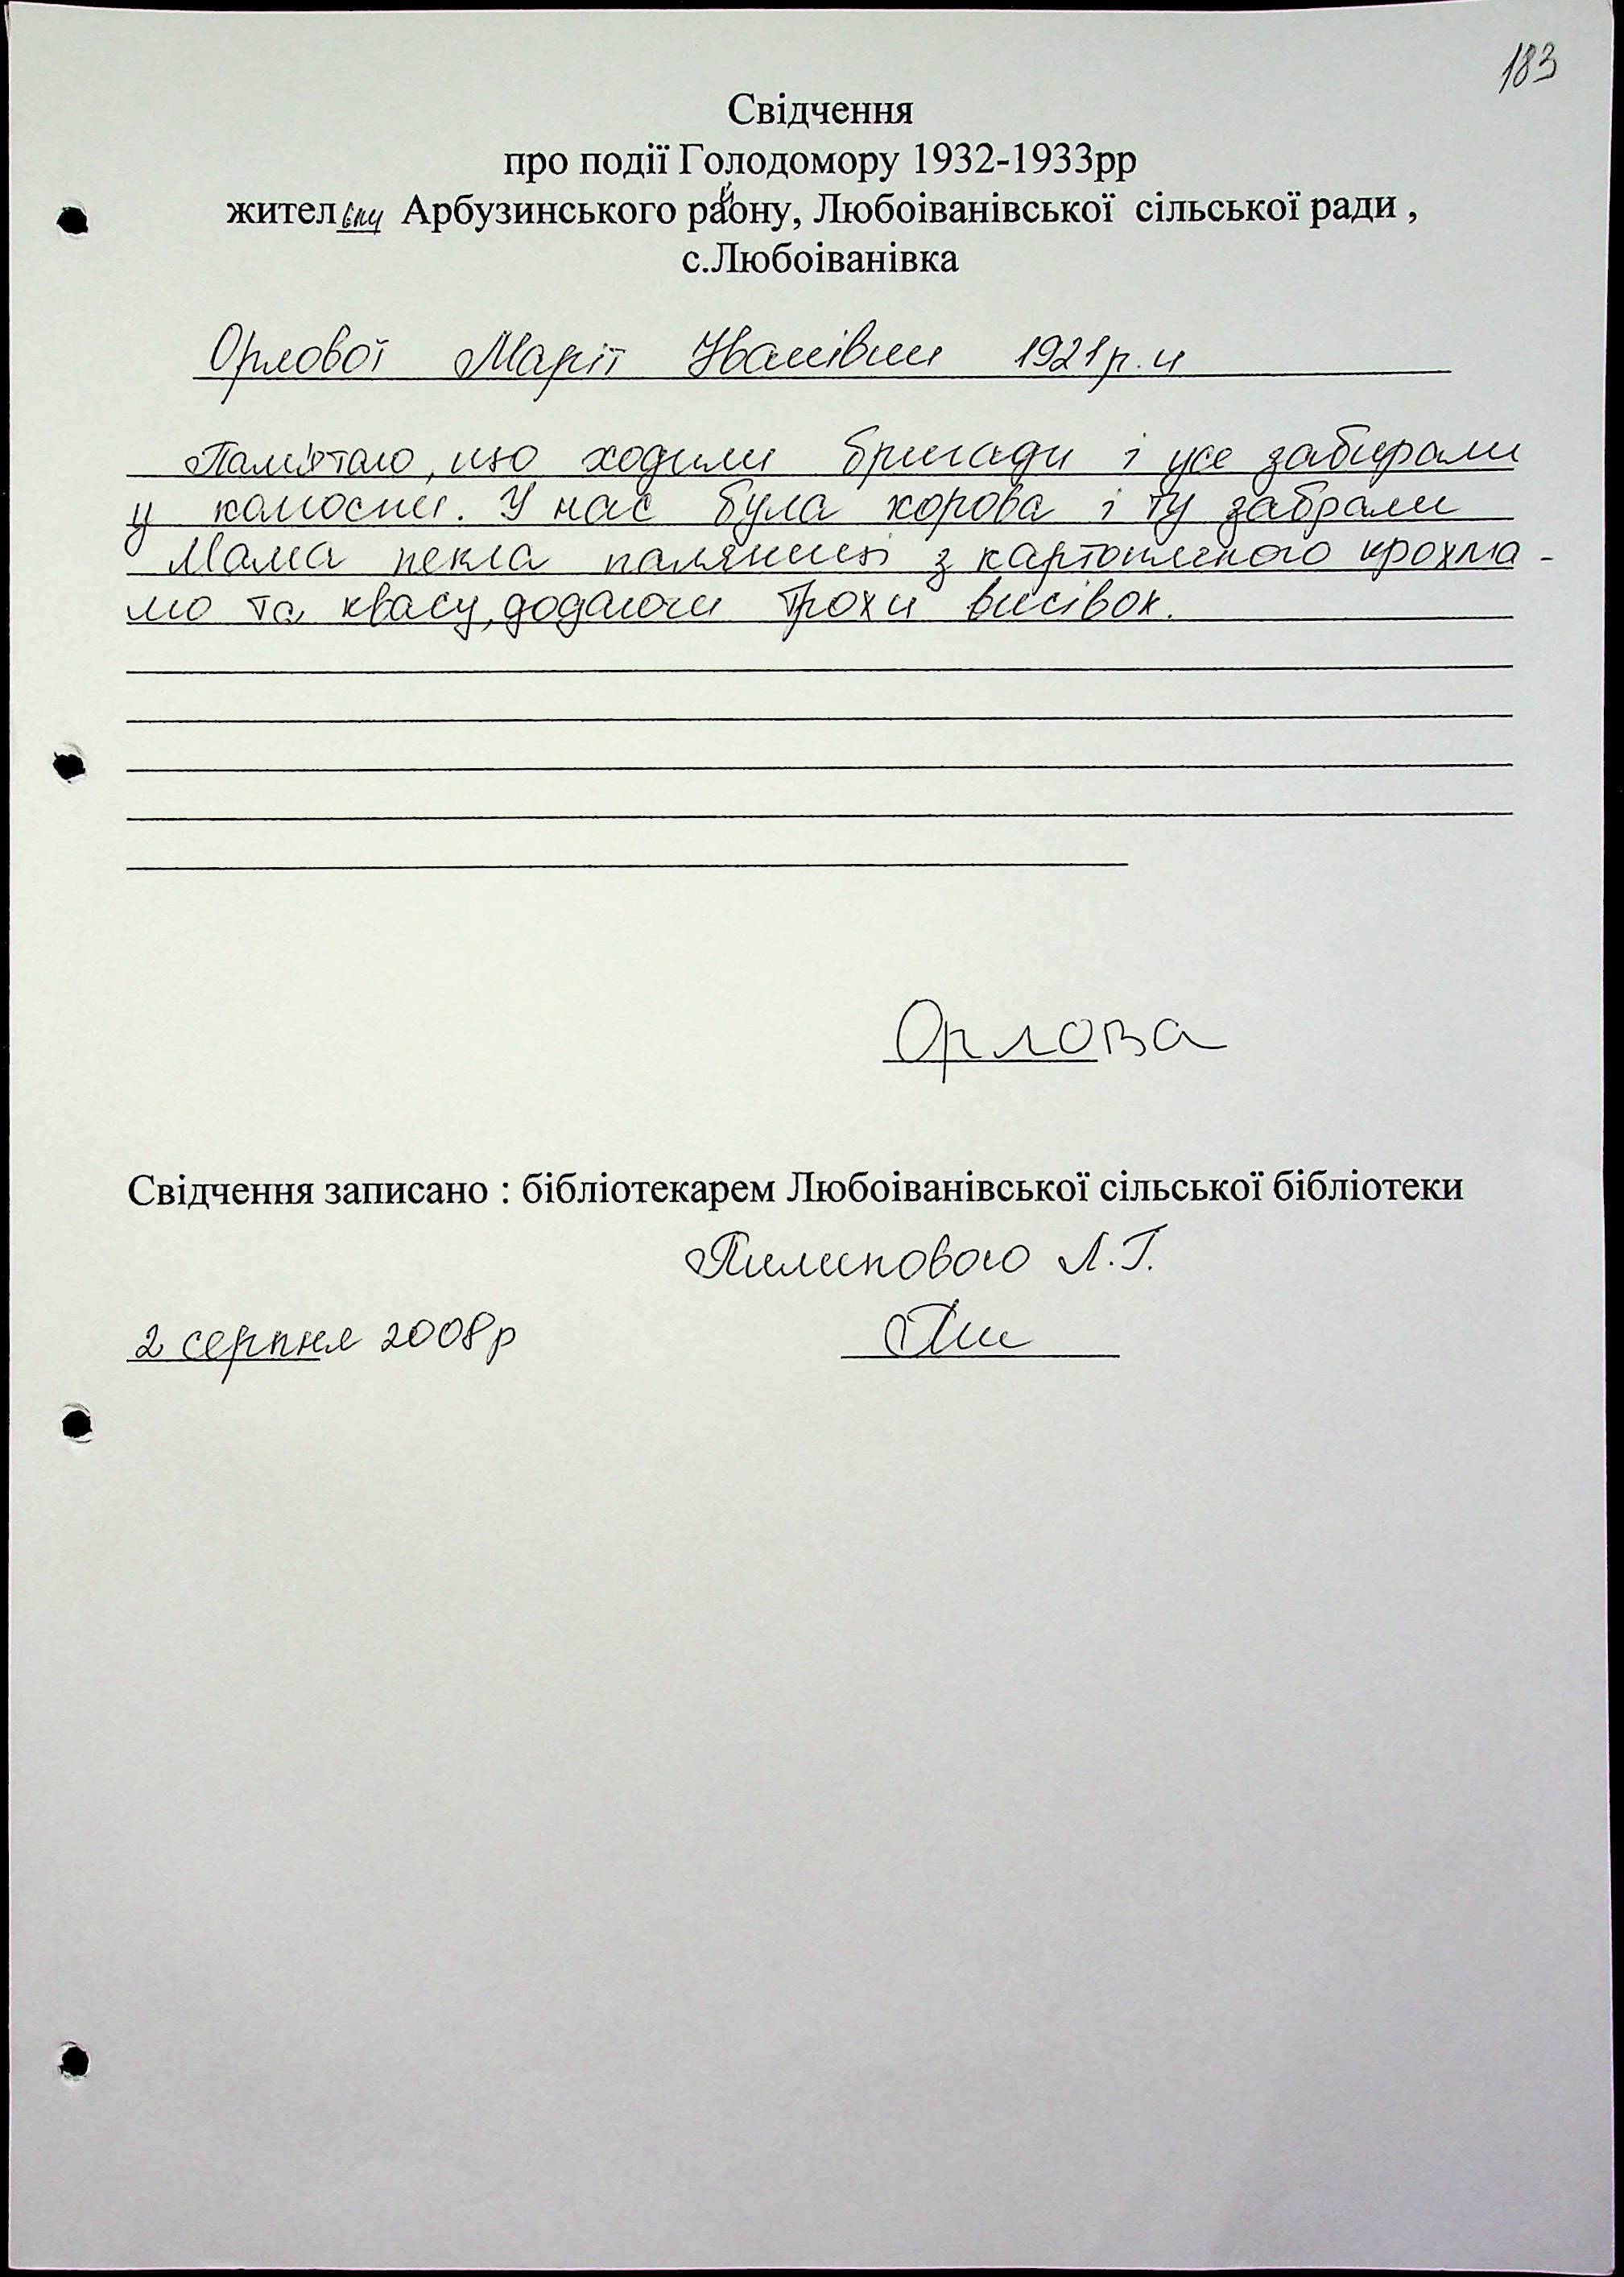 183
Свідчення
про події Голодомору 1932-1933рр
жительки Арбузинського району, Любоіванівської сільської ради ,
с.Любоіванівка
Орлової Марії Іванівни 1921р.н
Памятаю, що ходили бригади і усе забирали
у колоспи. У нас була корова і ту забрали
Мама пекла паляниці з картопляного крохма-
лю та квасу, додаючи трохи висівок.
Орлова
Свідчення записано : бібліотекарем Любоіванівської сільської бібліотеки
Пилиповою Л.Г.
2 серпня 2008р
Пил